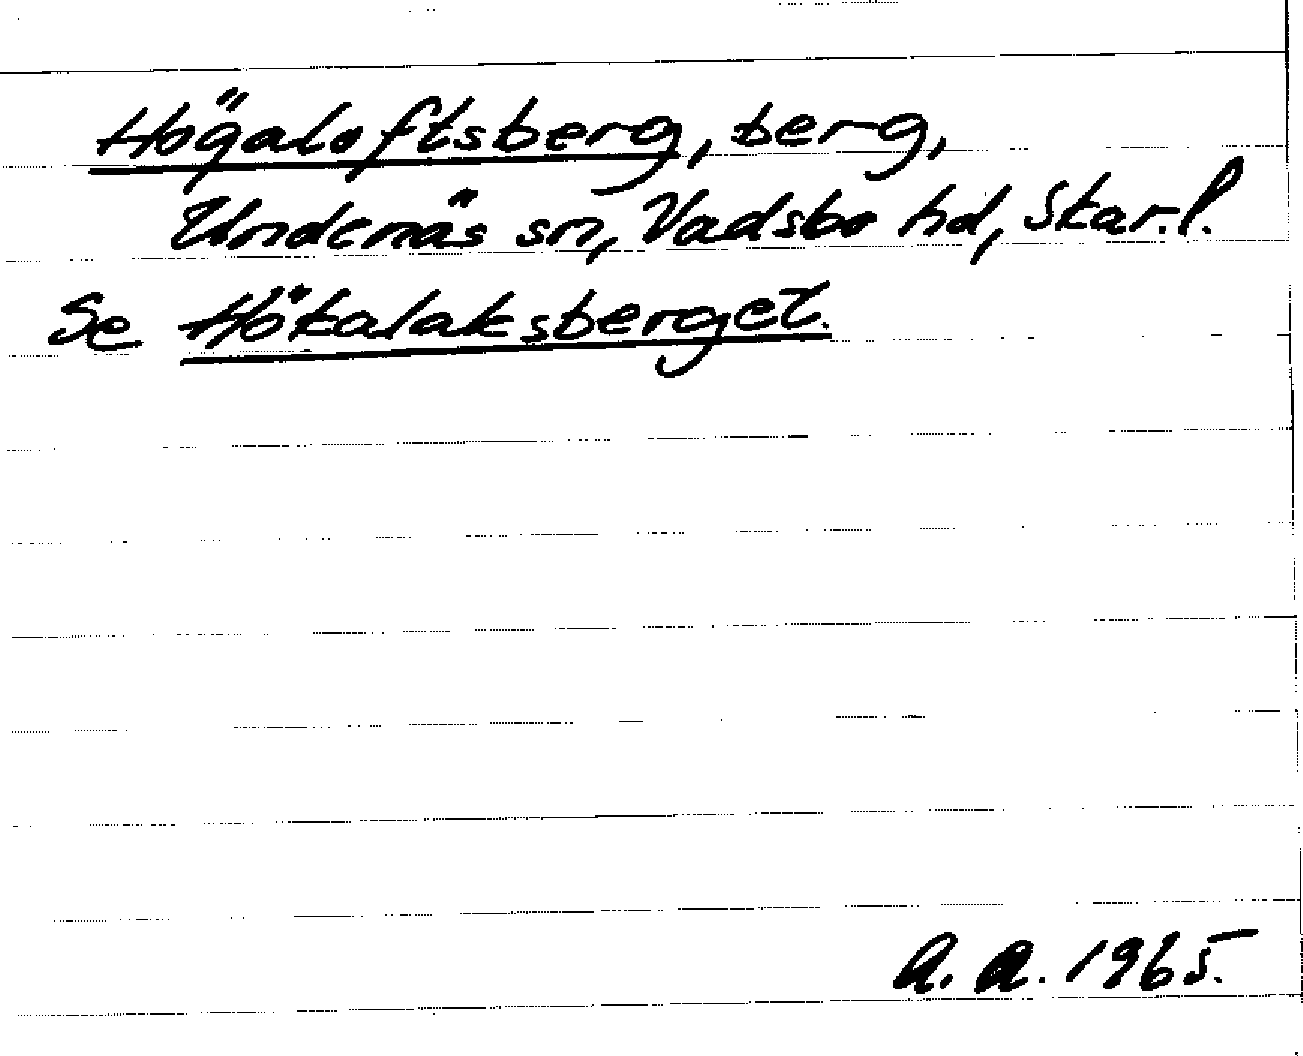 Högaloftsberg, berg,
Undenäs sn, Vadsbo hd, Skar.l.
Se Hökalaksberget.
A. A. 1965.